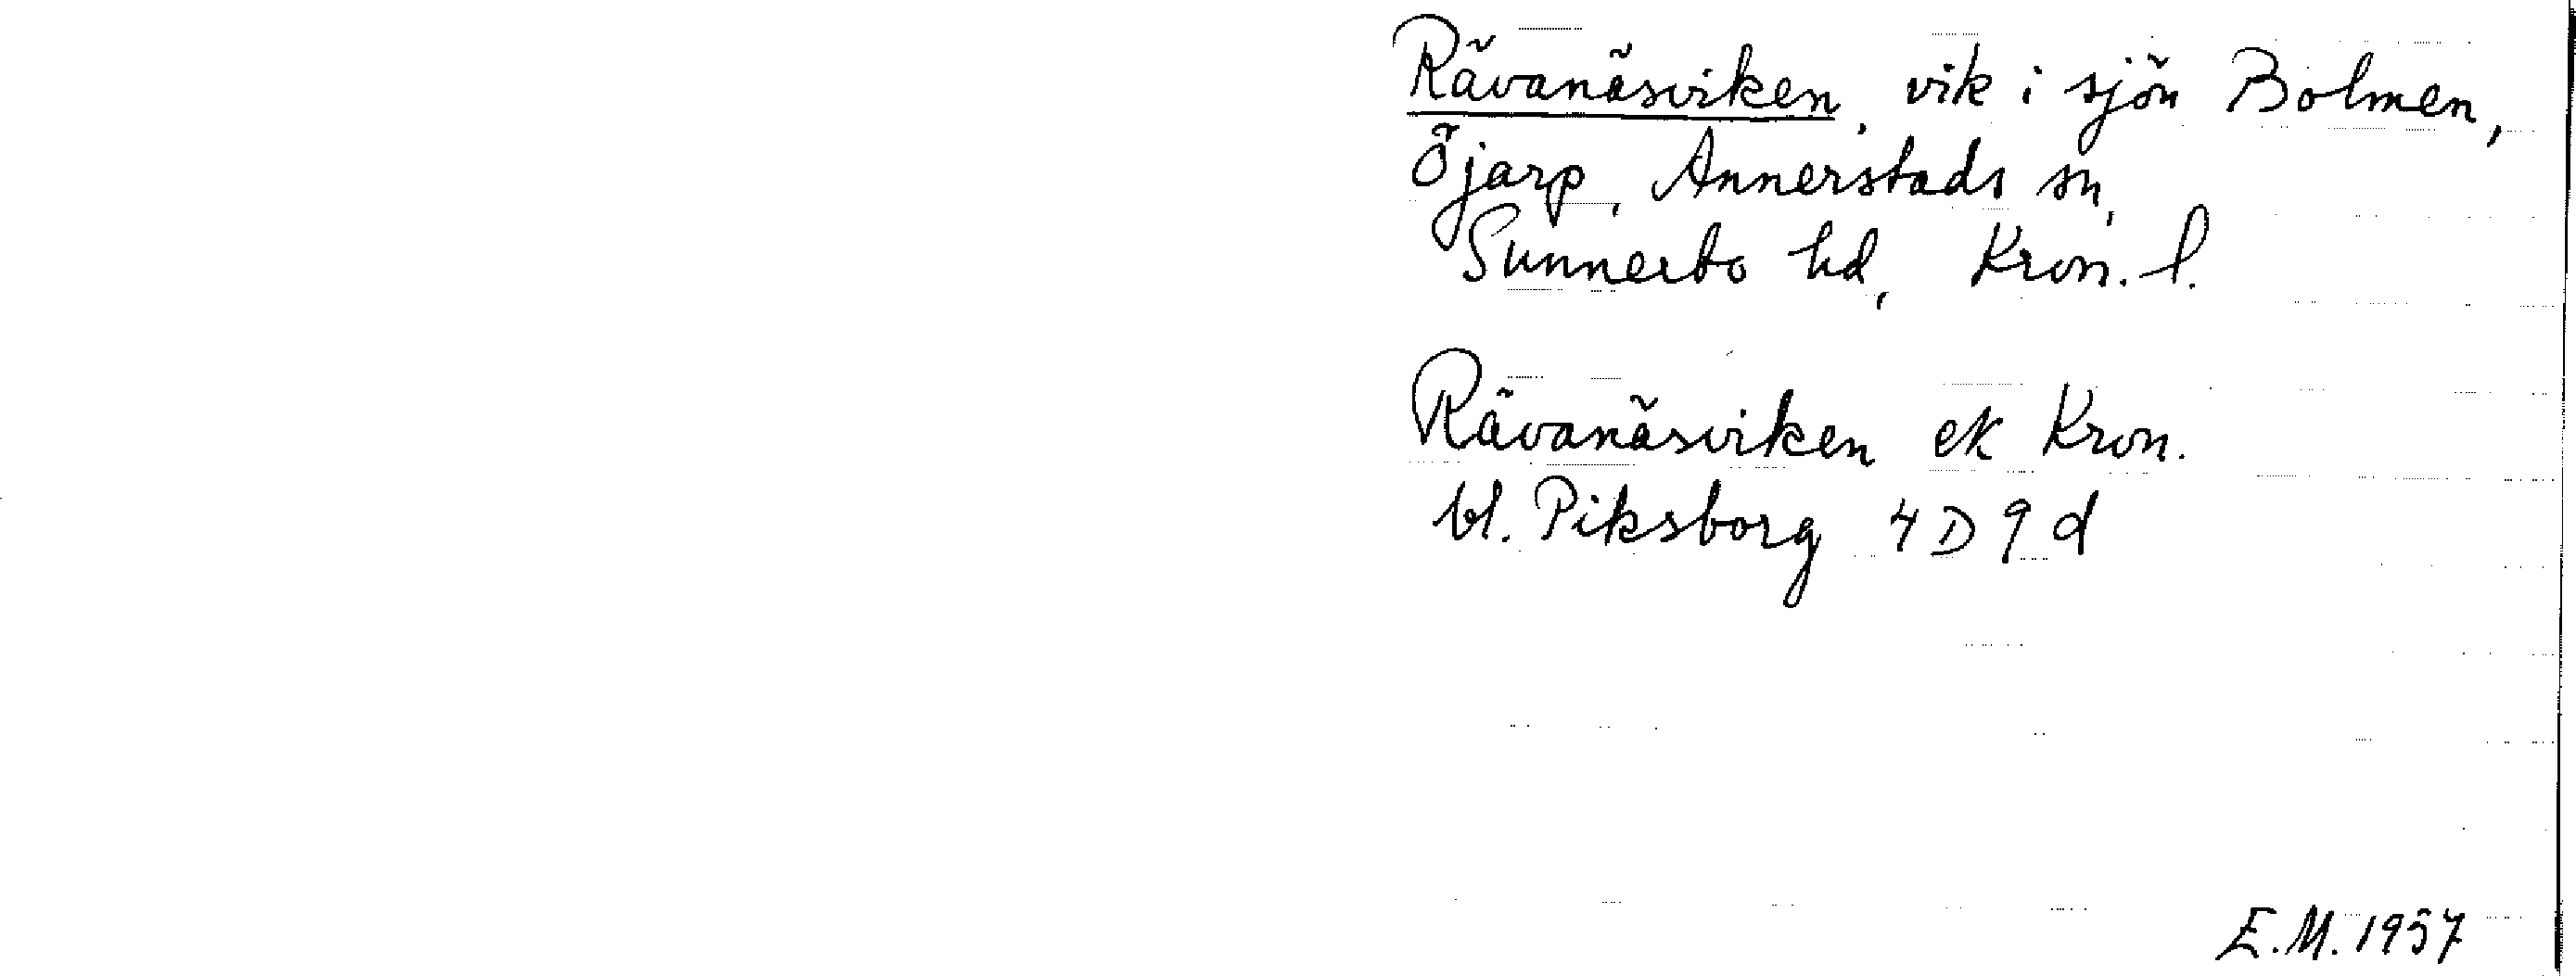 Rävanäsviken, vik i sjön Bolmen,
Öjarp, Annerstads sn,
Sunnerbo hd, Kron. l.
Rävanäsviken ek Kron.
bl. Piksborg 4 D 9 d
E.M. 1957